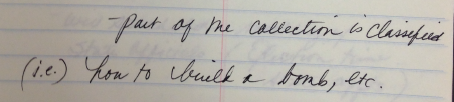 -part of the collection is classified
(i.e.) how to build a bomb, etc.